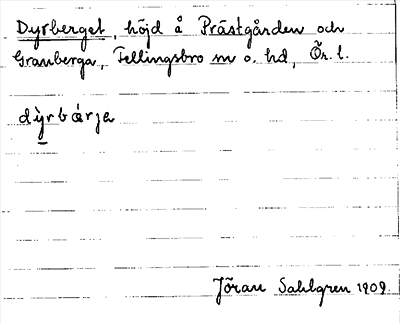 Dyrberget, höjd å Prästgården och
Granberga, Fellingsbro sn o. hd, Ör. l.
dỳrbærja
Jöran Sahlgren 1909.